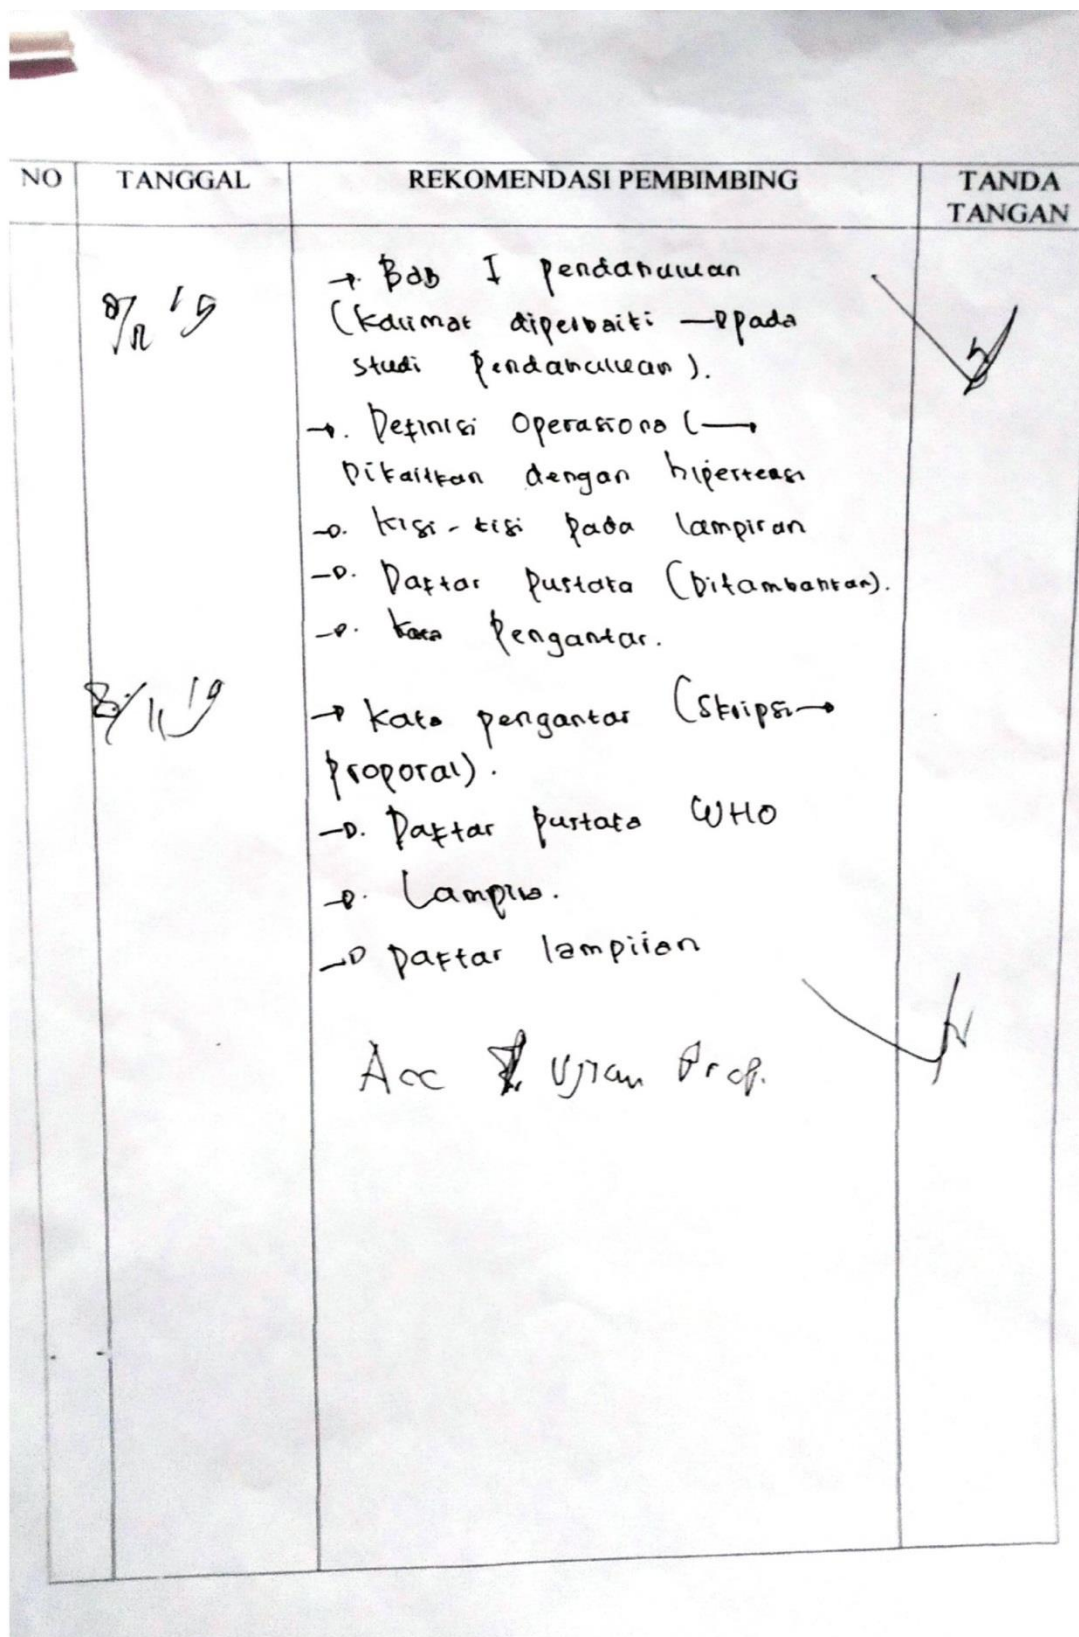 NO TANGGAL REKOMENDASI PEMBIMBING TANDA TANGAN
→. Bab I pendahuluan
(Kalimat diperbaiki → pada
studi Pendahuluan).
→. Definisi Operasional →
Dikaitkan dengan hipertensi
→. Kisi-kisi pada lampiran
→. Daftar Pustaka (Ditambahkan).
→. Kata Pengantar.
→ Kata pengantar (Skripsi →
Proposal).
→. Daftar pustaka WHO
→. Lampira.
→ Daftar lampiran
Acc Ujian Prop.